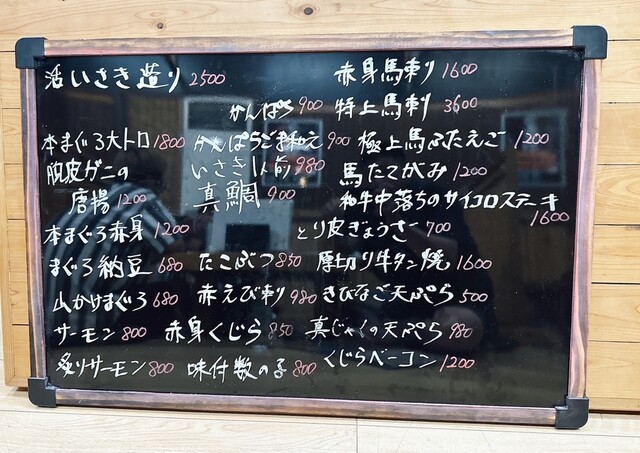 活いさき造り 2500
赤身馬刺り 1600
かんぱち 900
特上馬刺 3600
本まぐろ大トロ 1800
かんぱちごま和え 900
極上馬ふたえご 1200
脱皮ガニの
唐揚 1200
いさき1人前 980
馬たてがみ 1200
真鯛 900
和牛中落ちのサイコロステーキ
1600
本まぐろ赤身 1200
とり皮ぎょうざ 700
まぐろ納豆 680
たこぶつ 850
厚切り牛タン焼 1600
山かけまぐろ 680
赤えび刺り 980
きびなご天ぷら 500
サーモン 800
赤身くじら 850
真じゃくの天ぷら 980
炙りサーモン 800
味付数の子 800
くじらベーコン 1200